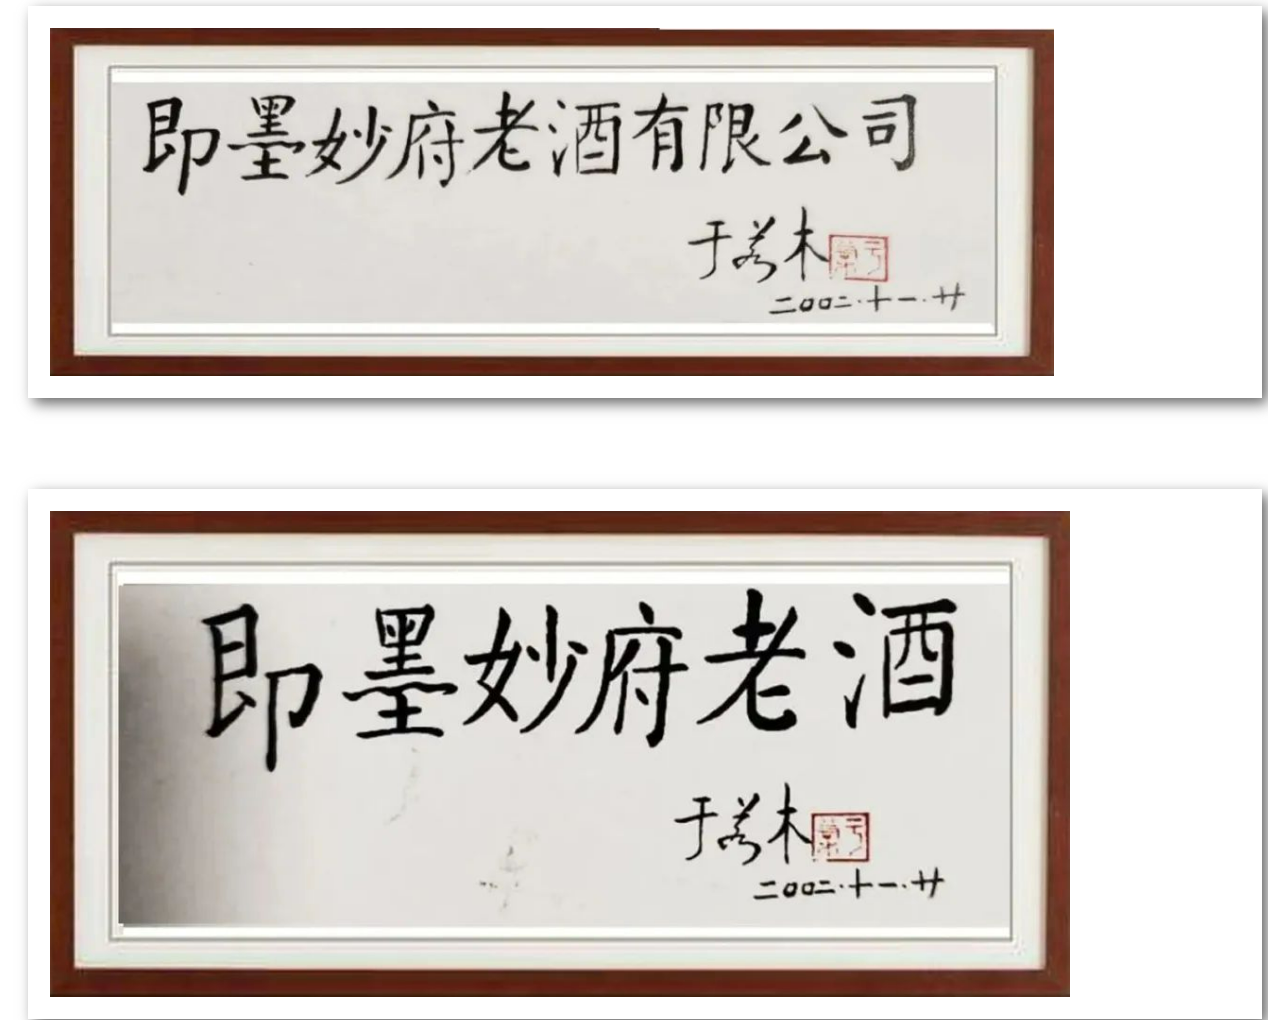 即墨妙府老酒有限公司
于若木
二〇〇二.十一.廿
即墨妙府老酒
于若木
二〇〇二.十一.廿